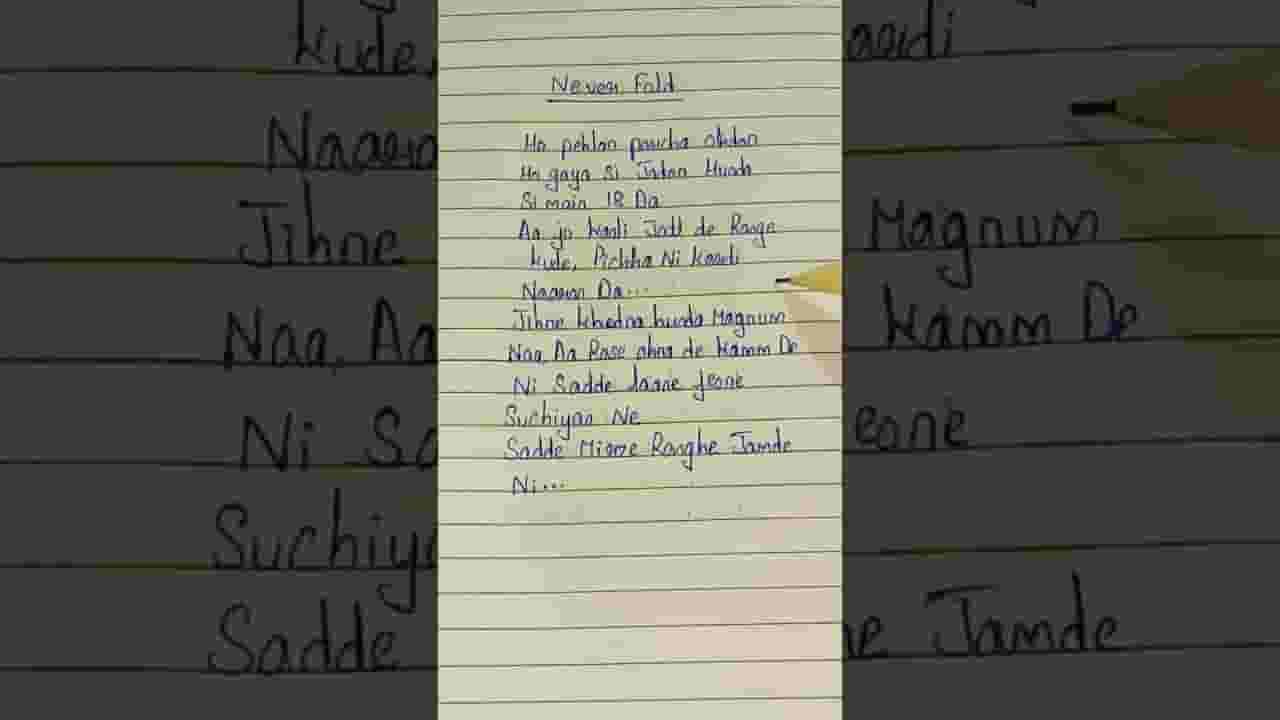 Never Fold
Ho pehlan parcha odidan
Ho gaya Si Jidan Hunda
Si main 18 Da
Aa jo kaali Jatt de Range
kude, Pichha Ni kaadi
Naaran Da...
Jihne khedna hunda Magnum
Naa, Aa Rase ohna de kamm De
Ni Sadde jeone
Suchiyan Ne
Sadde Ranghe Jamde
Ni...